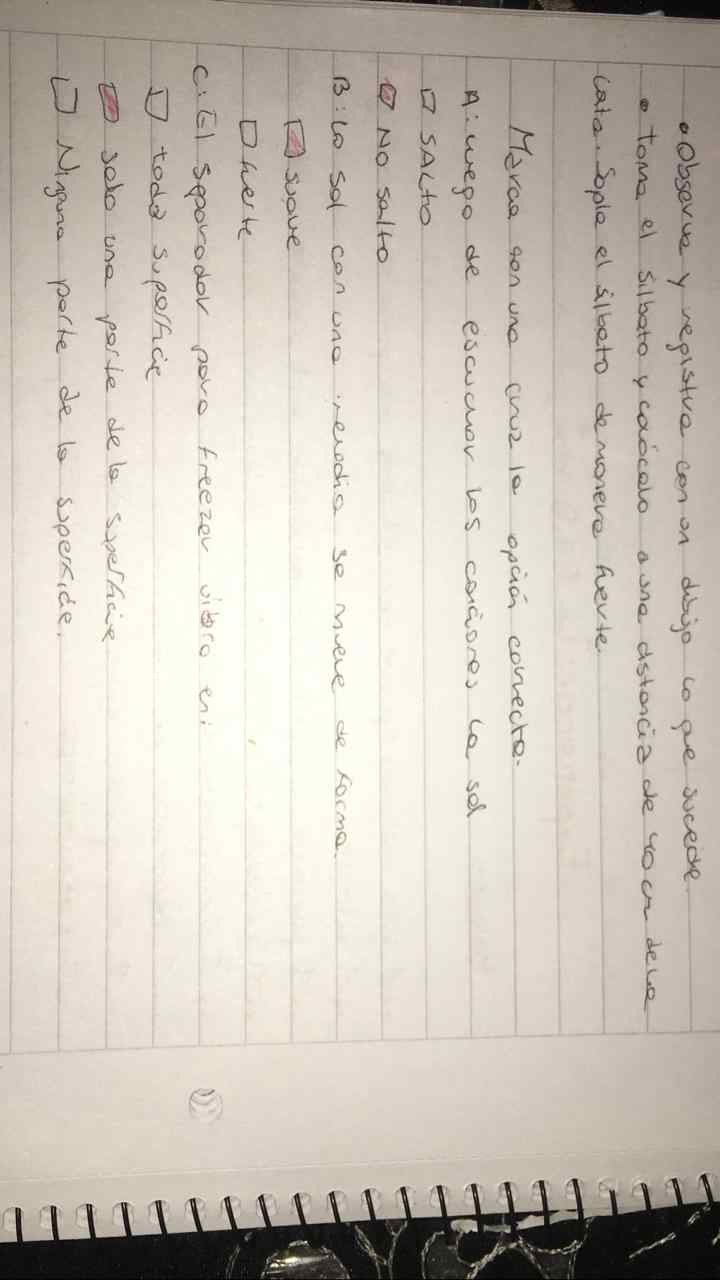 • Observa y registra con un dibujo lo que sucede.
• Toma el silbato y colócalo a una distancia de 40 cm de la
lata. Sopla el silbato de manera fuerte.
Marca con una cruz la opción correcta.
A: luego de escuchar las canciones la sal
□ SALTO
□ No salto
B: La sal con una melodia se mueve de forma.
□ suave
□ fuerte
C: El separador para freezer vibro en:
□ toda superficie
□ solo una parte de la superficie
□ Ninguna parte de la superficie.